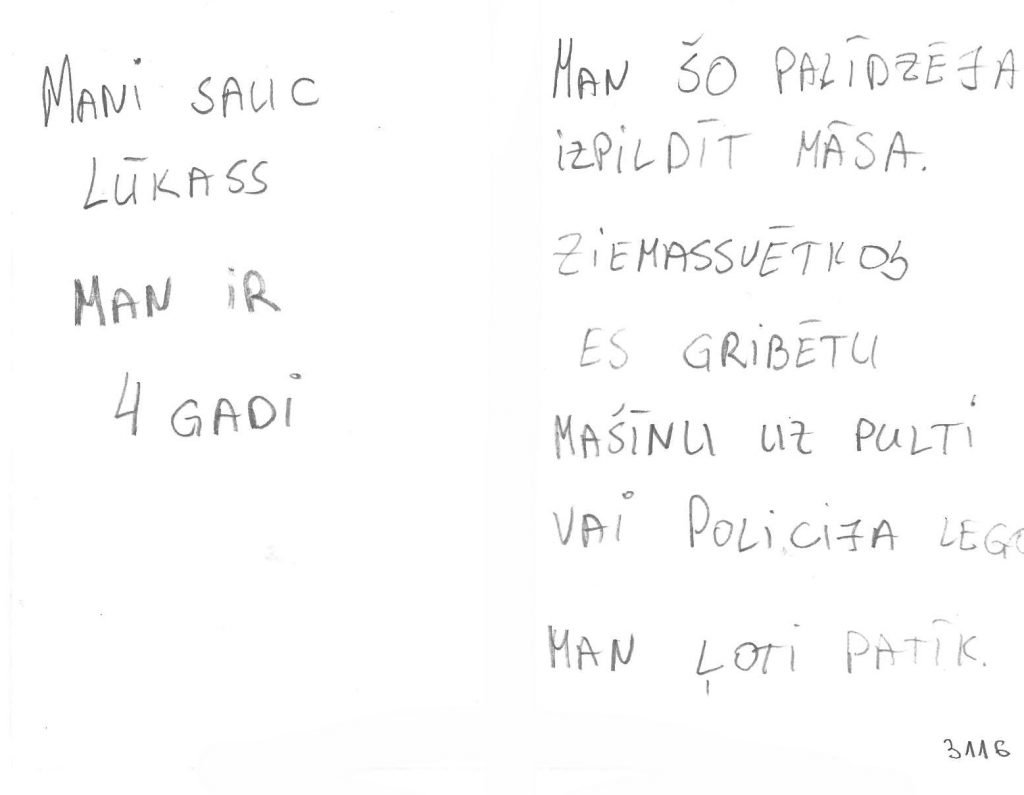 MANI SAUC
LŪKASS
MAN IR
4 GADI
MAN ŠO PALĪDZĒJA
IZPILDĪT MĀSA.
ZIEMASSVĒTKOS
ES GRIBĒTU
MAŠĪNU UZ PULTI
VAI POLICIJA LEGO
MAN ĻOTI PATĪK.
3116